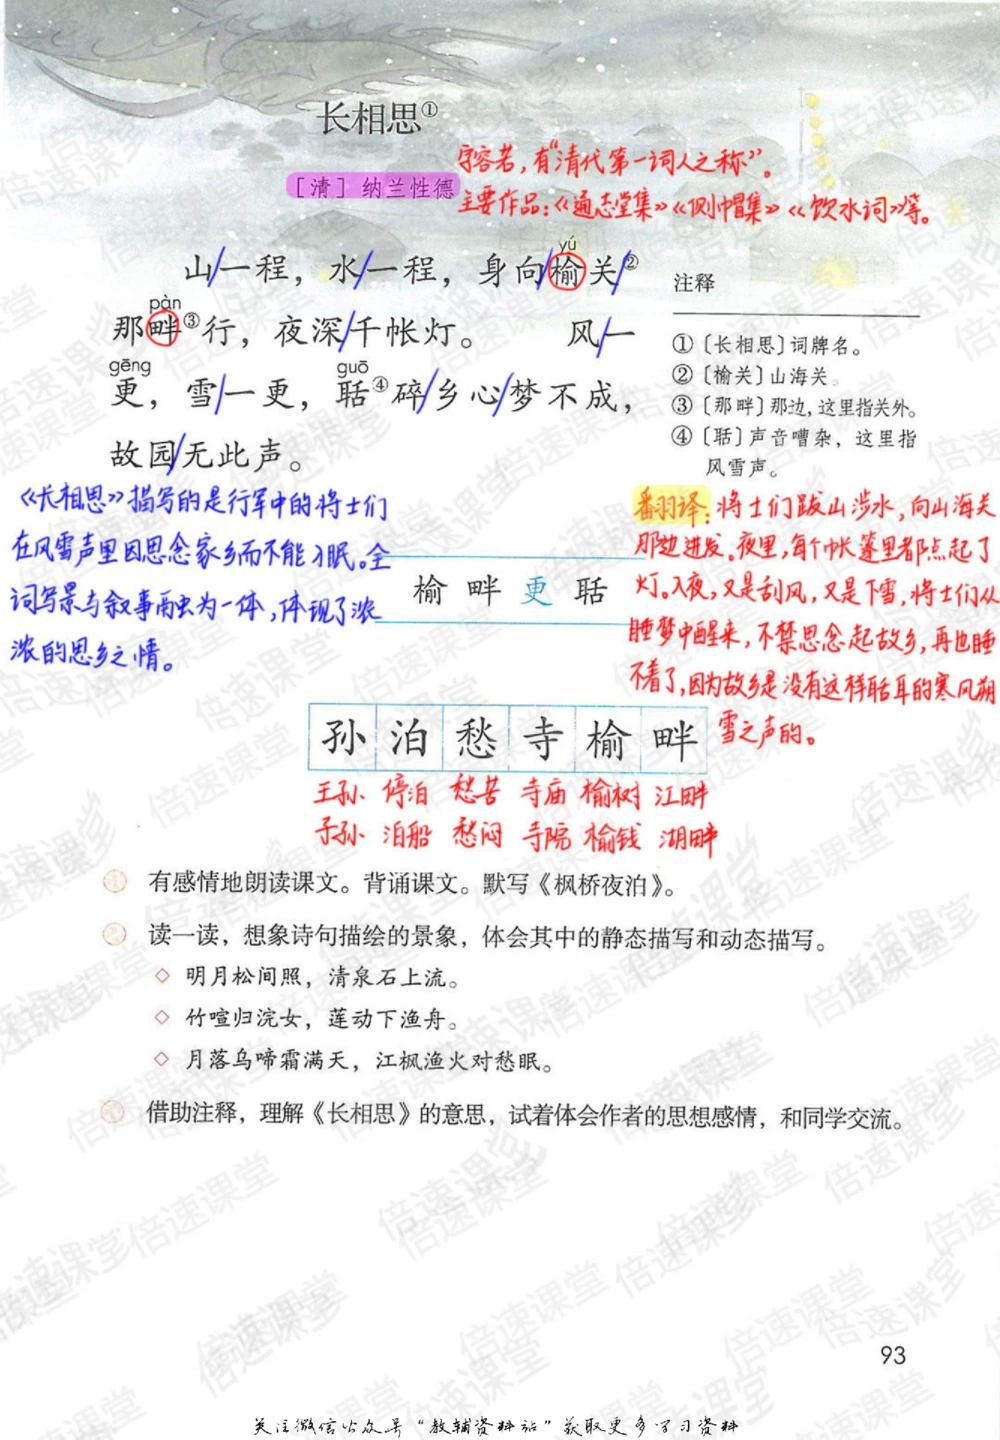 长相思①
字容若，有“清代第一词人之称”。
[清] 纳兰性德
主要作品：《通志堂集》《侧帽集》《饮水词》等。
yú
山/一程，水/一程，身向/榆关/②
pàn
那畔③行，夜深/千帐灯。 风/一
gēng guō
更，雪/一更，聒④碎/乡心/梦不成，
故园/无此声。
注释
①〔长相思〕词牌名。
②〔榆关〕山海关。
③〔那畔〕那边，这里指关外。
④〔聒〕声音嘈杂，这里指
风雪声。
《长相思》描写的是行军中的将士们
在风雪声里因思念家乡而不能入眠。全
词写景与叙事融为一体，体现了浓
浓的思乡之情。
翻译：将士们跋山涉水，向山海关
那边进发。夜里，每个帐篷里都点起了
灯。入夜，又是刮风，又是下雪，将士们从
睡梦中醒来，不禁思念起故乡，再也睡
不着了，因为故乡是没有这样聒耳的寒风朔
雪之声的。
榆 畔 更 聒
孙 泊 愁 寺 榆 畔
王孙 停泊 愁苦 寺庙 榆树 江畔
子孙 泊船 愁闷 寺院 榆钱 湖畔
有感情地朗读课文。背诵课文。默写《枫桥夜泊》。
读一读，想象诗句描绘的景象，体会其中的静态描写和动态描写。
◇ 明月松间照，清泉石上流。
◇ 竹喧归浣女，莲动下渔舟。
◇ 月落乌啼霜满天，江枫渔火对愁眠。
借助注释，理解《长相思》的意思，试着体会作者的思想感情，和同学交流。
93
关注微信公众号“教辅资料站”获取更多学习资料
倍速课堂